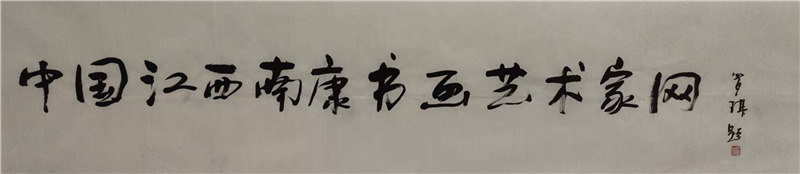 中国江西南康书画艺术家网
罗琪题